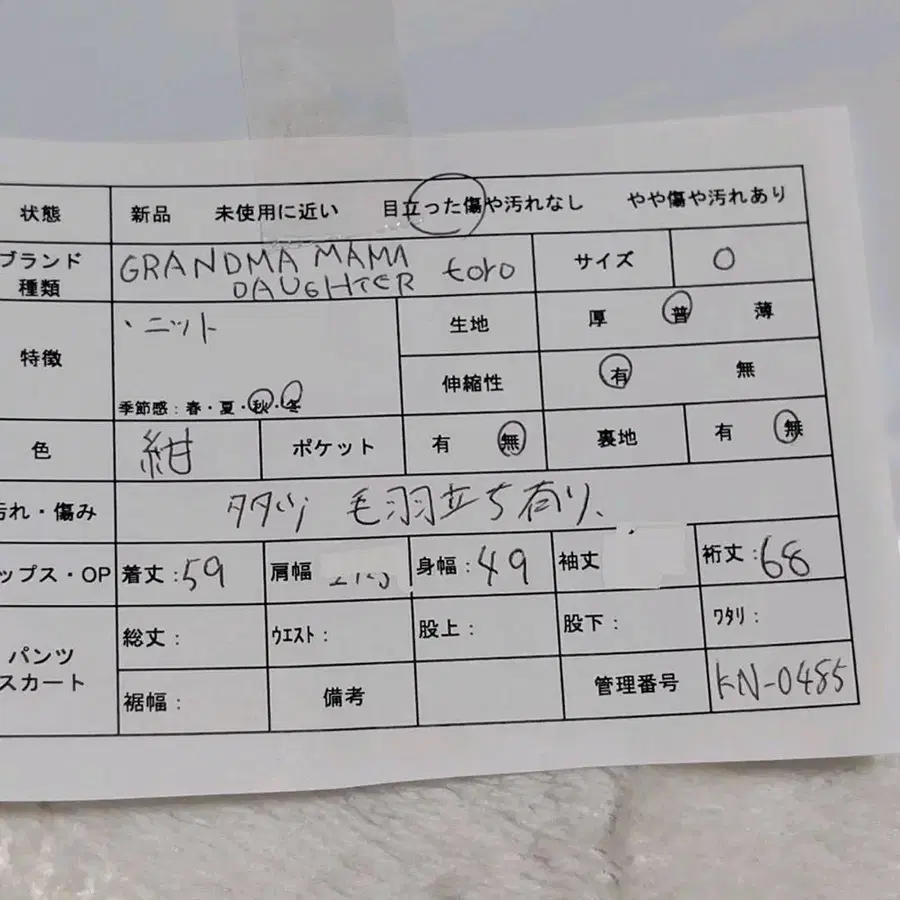 状態 新品 未使用に近い 目立った傷や汚れなし やや傷や汚れあり
ブランド
種類 GRANDMA MAMA
DAUGHTER toro サイズ 0
特徴 ・ニット 生地 厚 普 薄
伸縮性 有 無
季節感：春・夏・秋・冬
色 紺 ポケット 有 無 裏地 有 無
汚れ・傷み 毛羽立ち有り、
ップス・OP 着丈：59 肩幅 身幅：49 袖丈 裄丈：68
パンツ
スカート 総丈： ウエスト： 股上： 股下： ワタリ：
裾幅： 備考 管理番号 KN-0485